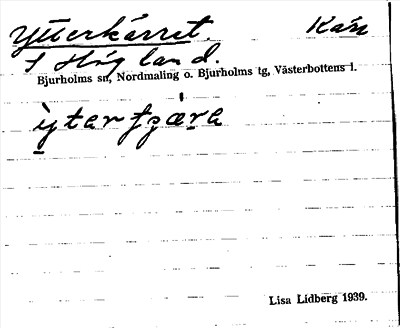 Ytterkärret. Kärr
f Högland.
Bjurholms sn, Nordmaling o. Bjurholms tg, Västerbottens l.
Lisa Lidberg 1939.